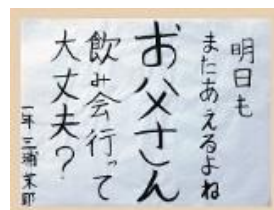 明日も
またあえるよね
お父さん
飲み会行って
大丈夫?
一年 三浦